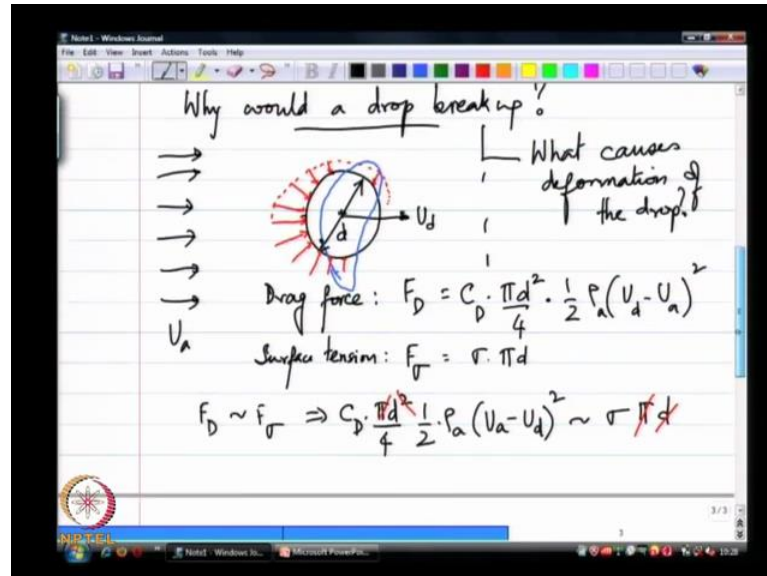 Note1 - Windows Journal
File Edit View Insert Actions Tools Help
Why would a drop breakup?
What causes
deformation of
the drop?
d
U_d
Drag force: F_D = C_D · πd²/4 · 1/2 ρ_a (U_d - U_a)²
U_a
Surface tension: F_σ = σ · πd
F_D ~ F_σ ⇒ C_D · πd²/4 1/2 · ρ_a (U_a - U_d)² ~ σ π d
3/3
3
NPTEL
Note1 - Windows Jo...
Microsoft PowerPoi...
10:28